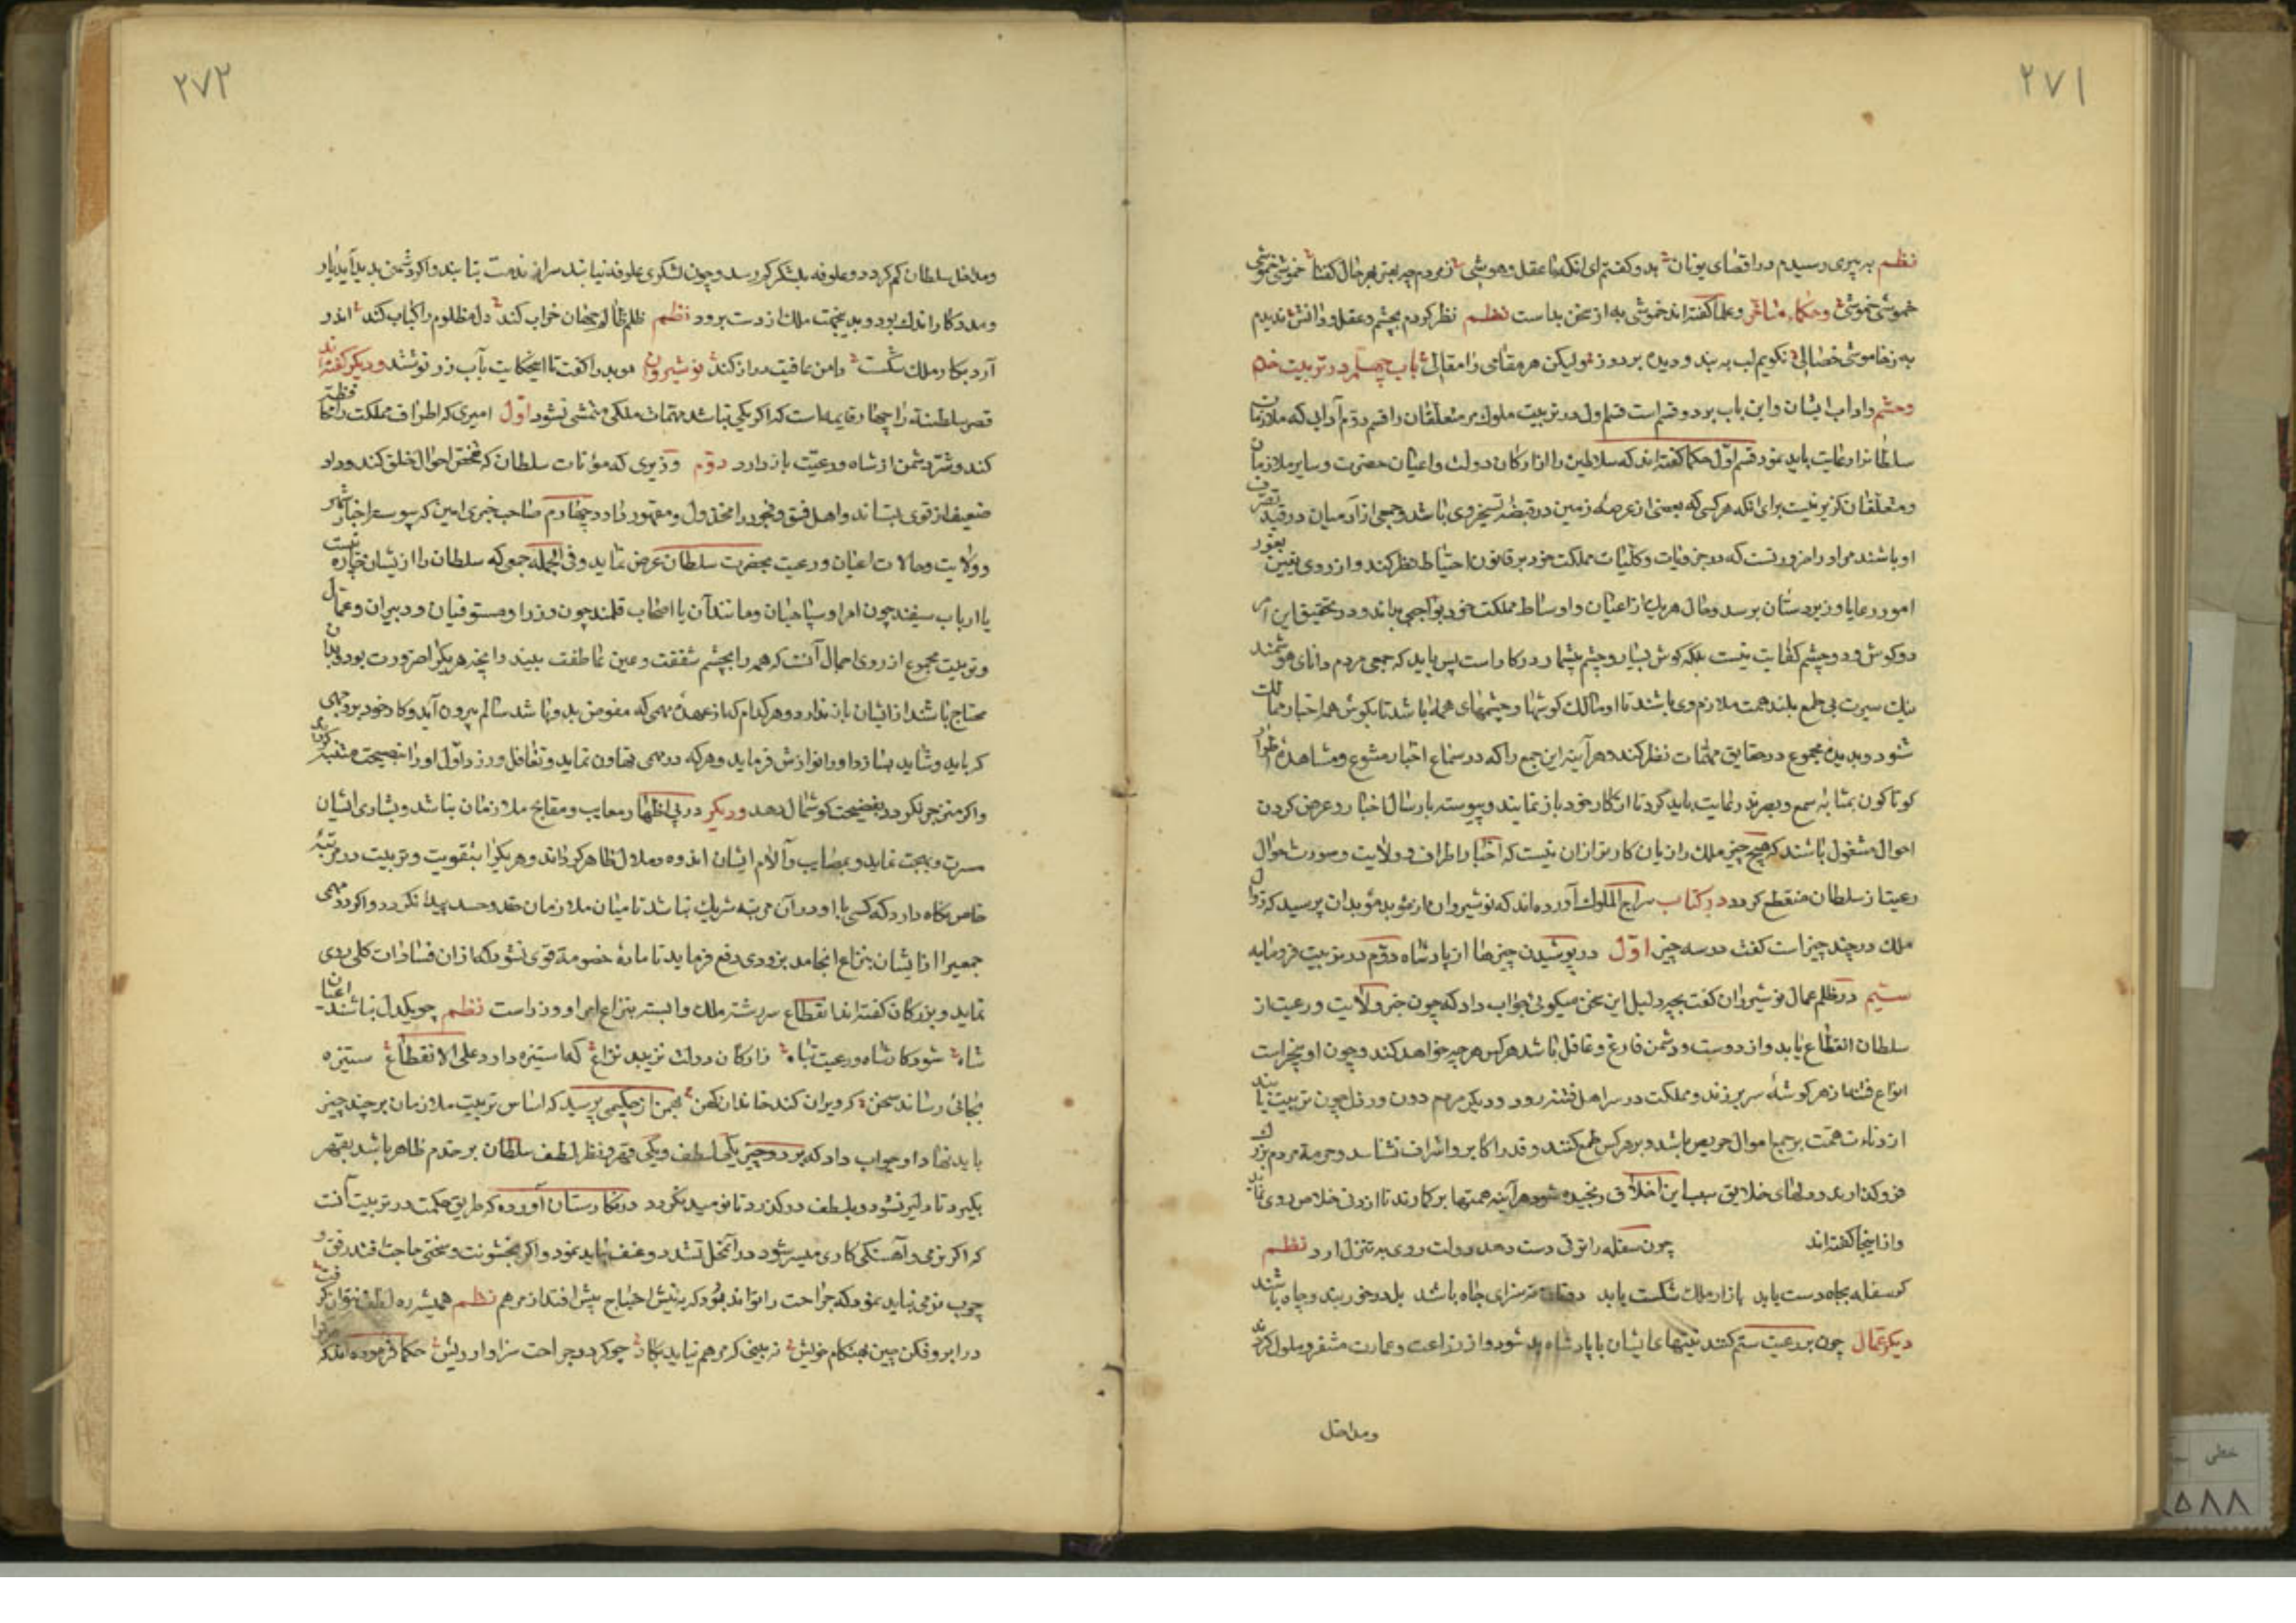 ۲۷۱
نظم به پیری رسیدم در اقصای یونان بدو گفتم ای آنکه با عقل و هوشی ز مردم چه بهتر بهر حال گفتا خموشی خموشی
خموشی خموشی وحکما وعلما گفته اند خموشی به از سخن بد است نظم نظر کردم بچشم و عقل و دانش ندیدم
به ز خاموشی خصالی نگویم لب به بند و دیده بر دوز ولیکن هر مقامی را مقالی باب چهلم در تربیت خدم
وحشم و آداب ایشان و این باب بر دو قسم است قسم اول در تربیت ملوک مر متعلقان را قسم دوم آدابی که ملازمان
سلطانرا رعایت باید نمود قسم اوّل حکما گفته اند که سلاطین را از ارکان دولت واعیان حضرت وسایر ملازمان
ومتعلقان گزیر نیست برای آنکه هر کسی که بعضی از عرصهٔ زمین در قبضهٔ تسخیر وی باشد وجمعی از آدمیان در قید تصرف
او باشند مر او را ضرورتست که در جزویات وکلّیات مملکت خود بر قانون احتیاط نظر کند و از روی یقین بغور
امور رعایا وزیردستان برسد وحال هر یک از اعیان و اوساط مملکت خود بواجبی بداند و در تحقیق این امر
دو گوش ودو چشم کفایت نیست بلکه گوش بسیار وچشم بیشمار در کار است پس باید که جمعی مردم دانای هوشمند
نیک سیرت بی طمع بلند همت ملازم وی باشند تا او مالک گوشها و چشمهای همه باشد تا بگوش همه اخبار ممالک
شنود وبدیدهٔ مجموع در حقایق مهمّات نظر کند و هر آینه این جمع را که در سماع اخبار متنوع ومشاهدهٔ اطوار
کوناکون بمثابهٔ سمع و بصرند رعایت باید کرد تا از کار خود باز نمانند وپیوسته بارسال اخبار و عرض کردن
احوال مشغول باشند که هیچ چیز ملک را زیان کارتر از آن نیست که اخبار اطراف و ولایت وصورت احوال
رعیت از سلطان منقطع کردد در کتاب سراج الملوک آورده اند که نوشیروان از موبد مؤبدان پرسید که زوال
ملک در چند چیز است گفت در سه چیز اوّل در پوشیدن چیزها از پادشاه دوّم در تربیت فرومایه
سیّم در ظلم عمال نوشیروان گفت بچه دلیل این سخن میکوئی جواب داد که چون خبر ولایت و رعیت از
سلطان انقطاع یابد و از دوست و دشمن فارغ و غافل باشد هر کس هر چه خواهد کند و چون او بیخبر است
انواع فتنها از هر گوشه سر برزند ومملکت در سر اهل فتنه رود و دیگر مردم دون و رذل چون تربیت یابند
از دنائت همّت بر جمع اموال حریص باشند و بر هر کس طمع کنند و قدر اکابر واشراف نشناسند وحرمة مردم بزرک
فرو گذارند و دلهای خلایق بسبب این اخلاق رنجیده شود هر آینه همتها بر گمارند تا از وی خلاص روی نماید
و از اینجا گفته اند چون سفله را ترقی دست دهد دولت روی به تنزل آرد نظم
گر سفله بجاه دست یابد بازار ملک شکست یابد دونان نه سزای جاه باشد بل در خور بند و چاه باشند
دیگر عمّال چون بر رعیت ستم کنند نیّتهای ایشان با پادشاه بد شود و از زراعت و عمارت متنفر و ملول کردند
ومداخل
۲۷۲
ومداخل سلطان کم کردد و علوفه بلشکر کم رسد وچون لشکری علوفه نیابد سر از خدمت بتابند و اگر دشمن پدید آید یار
ومددکار اندک بود و بدینجهت ملک از دست برود نظم ظلم ظالم جهان خراب کند دل مظلوم را کباب کند اندر
آرد بکار ملک شکست دامن عافیت دراز کند نوشیروان موبد را گفت تا این حکایت بآب زر نوشتند و دیگر گفته اند
قصر سلطنة را چهار قایمه است که اگر یکی نباشد مهمّات ملکی متمشی نشود اوّل امیری که اطراف مملکت را محافظت
کند وشرّ دشمن از شاه و رعیّت باز دارد دوّم وزیری که مؤنات سلطان که تفحص احوال خلق کند وداد
ضعیف از قوی بستاند و اهل فسق وفجور را مخذول و مقهور دارد چهارم صاحب خبری امین که پیوسته اخبار شهر
و ولایت وحالات اعیان و رعیت بحضرت سلطان عرض نماید وفی الجمله جمعی که سلطان را از ایشان چاره نیست
یا ارباب سیفند چون امرا و سپاهیان ومانند آن یا اصحاب قلمند چون وزرا ومستوفیان و دبیران وعمّال
و تربیت مجموع از روی اجمال آنست که همه را بچشم شفقت وعین عاطفت بیند و آنچه هر یک را ضرورت بود و بدان
محتاج باشند از ایشان باز ندارد و هر کدام که از عهدهٔ مهمی که مفوض بدو باشد سالم بیرون آید و کار خود بر وجهی
که باید وشاید بسازد او را نوازش فرماید و هر که در مهمی تهاون نماید و تغافل ورزد اوّل او را بنصیحت متنبه گرداند
واکر منزجر نکردد بفضیحت کوشمال دهد ودیگر در پی اظهار معایب ومقابح ملازمان نباشد و بشادی ایشان
مسرت وبهجت نماید و بمصایب وآلام ایشان اندوه وملال ظاهر کرداند وهر یک را بتقویت و تربیت در مرتبهٔ
خاص نکاه دارد که کسی با او در آن مرتبه شریک نباشد تا میان ملازمان حقد وحسد پیدا نکردد و اکر در مهمی
جمعی را از ایشان بنزاع انجامد بزودی دفع فرماید تا مادهٔ خصومة قوی نشود که از آن فسادات کلی روی
نماید و بزرکان گفته اند انقطاع سررشتهٔ ملک وابسته بنزاع امرا و وزراست نظم چو یکدل نباشند اعیان
شاه شود کار شاه و رعیت تباه ز ارکان دولت نزیبد نزاع که استیزه دارد علی الانقطاع ستیزه
بجائی رساند سخن که ویران کند خاندان کهن بهمن از حکیمی پرسید که اساس تربیت ملازمان بر چند چیز
باید نهاد او جواب داد که بر دو چیز یکی لطف ویکی قهر و نظر لطف سلطان بر خدم ظاهر باشد بقهر
بگیرد تا دلیر نشود و بلطف در گذرد تا نومید نکردد در نکارستان آورده که طریق حکمت در تربیت آنست
که اکر بنرمی و آهستکی کاری میسر شود در آنمحل تشدد و عنف نباید نمود و اکر بخشونت و سختی حاجت افتد رفق و
چرب نرمی نباید نمود که جراحت را تواند بود که بنیش احتیاج بیش افتد از مرهم نظم همیشه ره لطف نتوان گرفت
در ابرو فکن چین بهنکام خویش نه بینی که مرهم نیاید بکار چو کردد جراحت سزاوار نیش حکما فرموده اند که